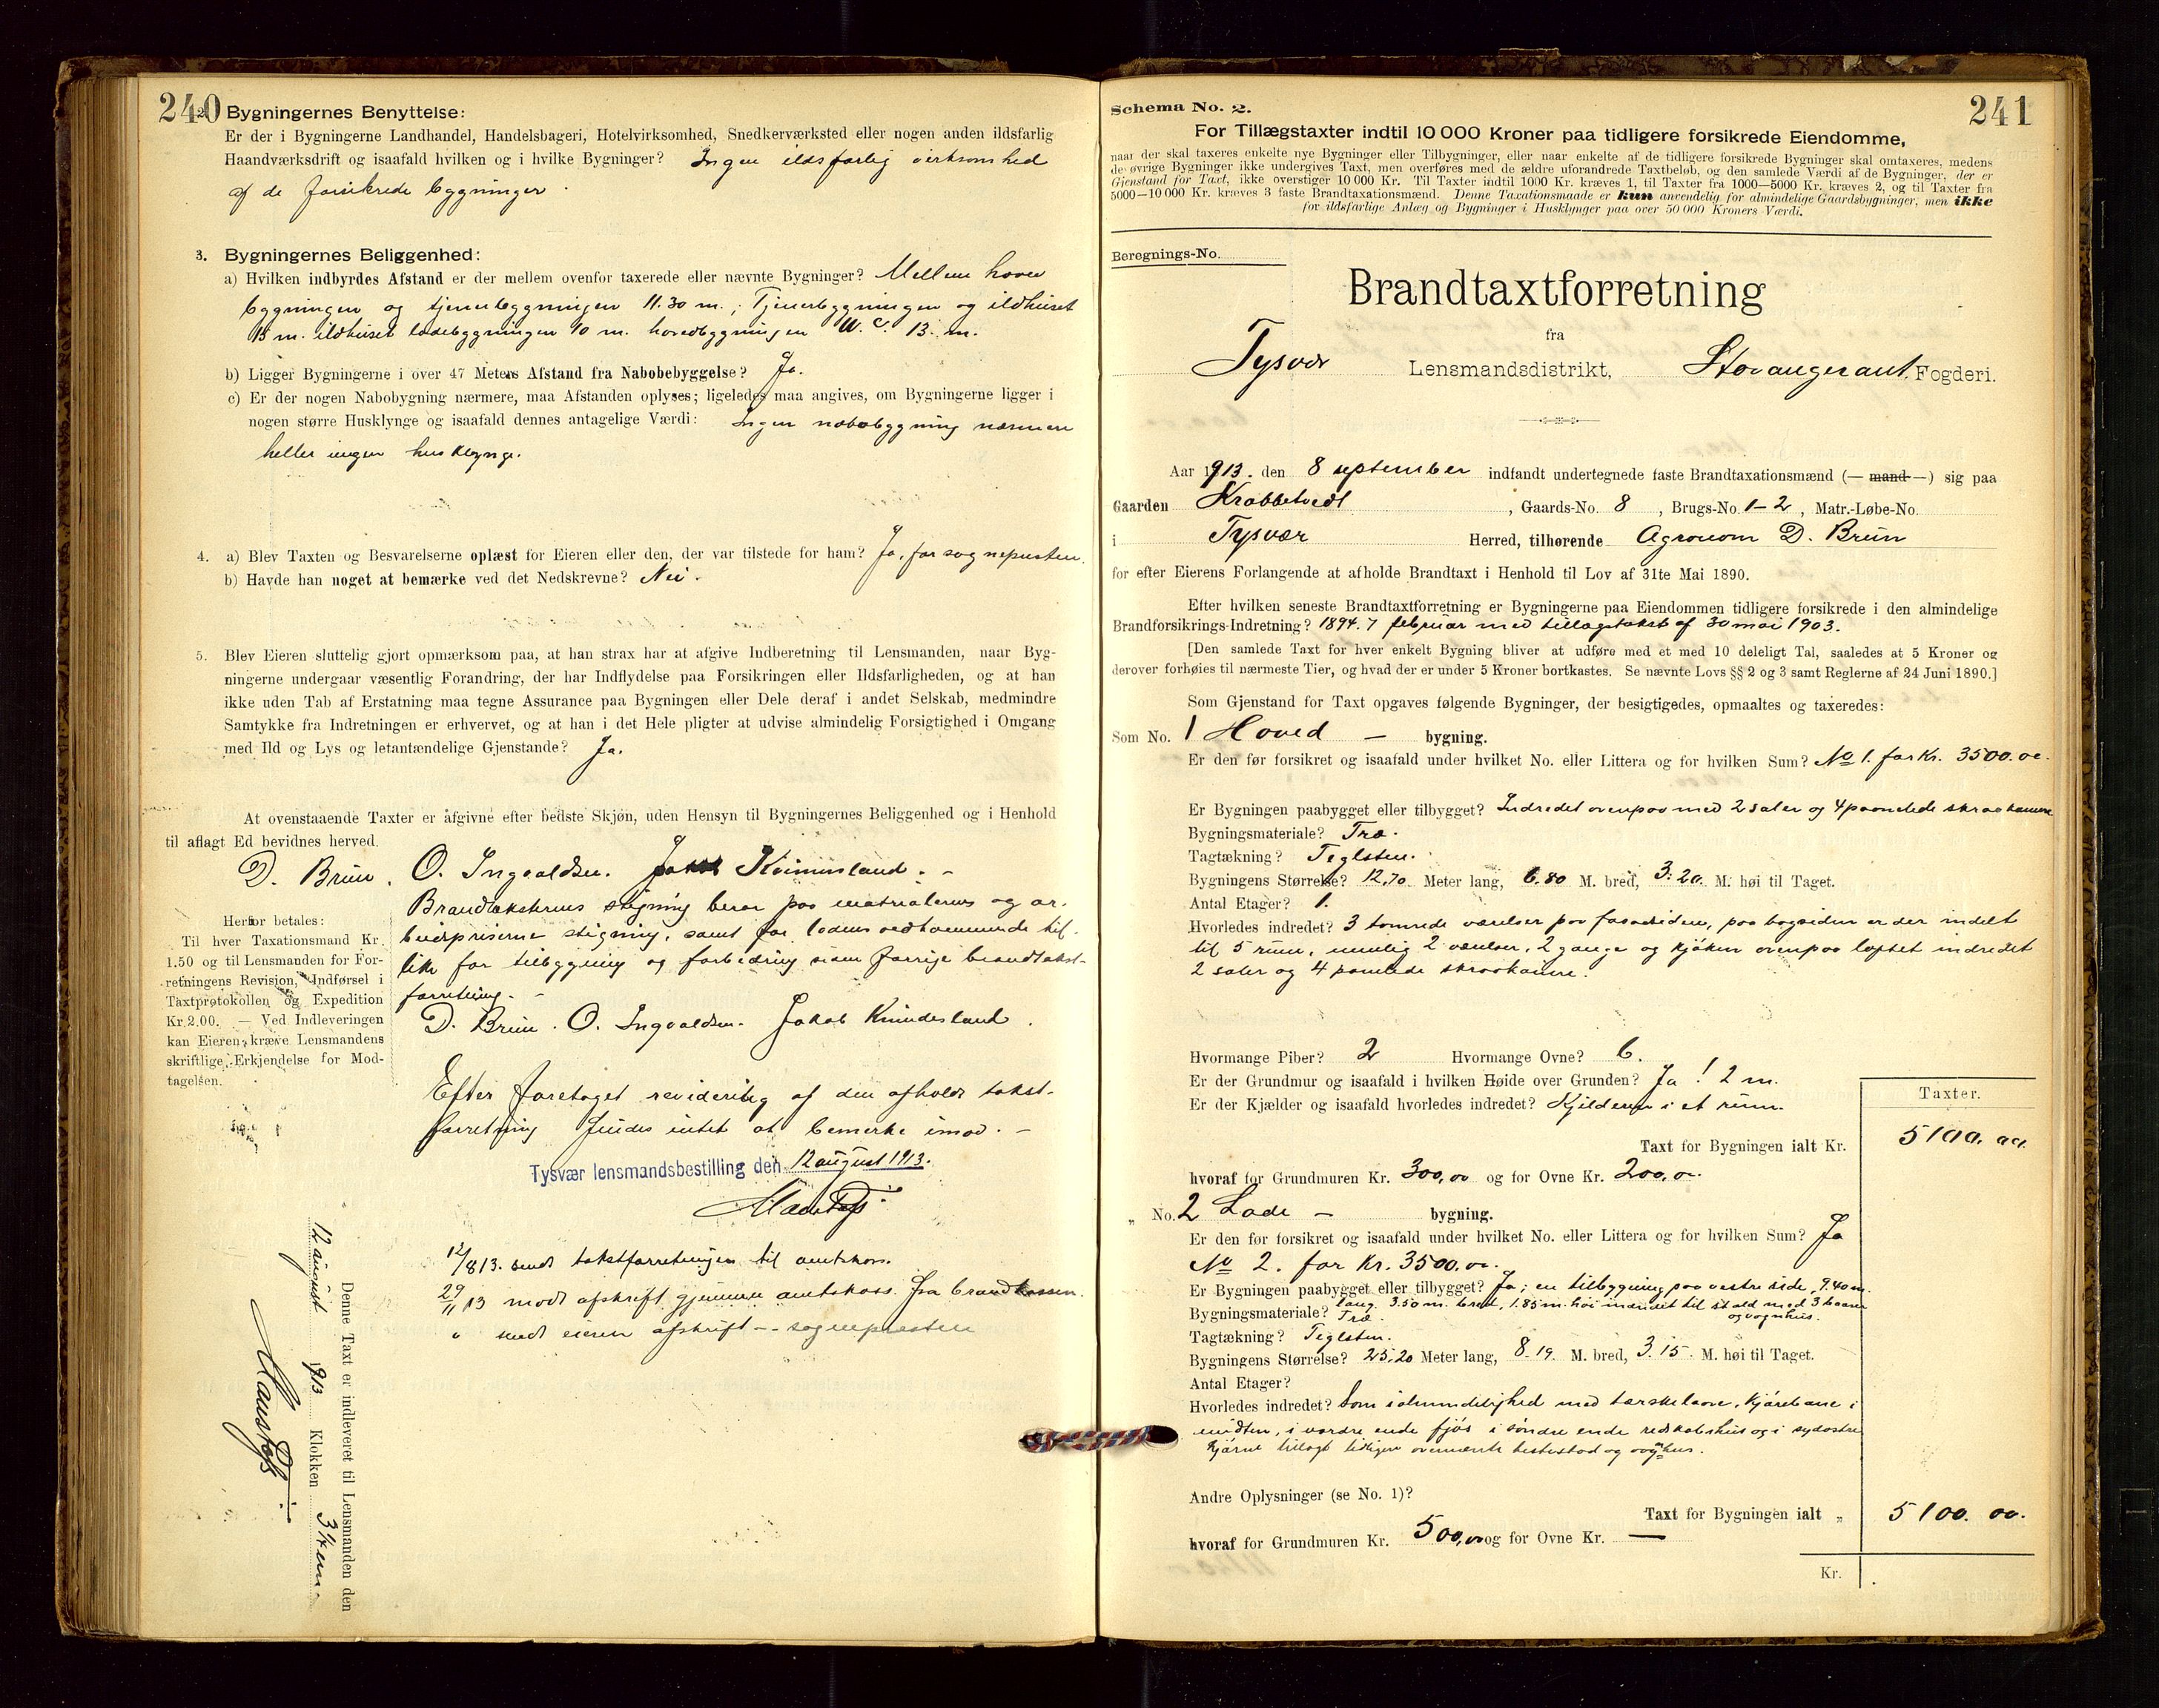 240
2. Bygningernes Benyttelse:
Er der i Bygningerne Landhandel, Handelsbageri, Hotelvirksomhed, Snedkerværksted eller nogen anden ildsfarlig
Haandværksdrift og isaafald hvilken og i hvilke Bygninger? Ingen ildsfarlig virksomhed
af de forsikrede bygninger.
3. Bygningernes Beliggenhed:
a) Hvilken indbyrdes Afstand er der mellem ovenfor taxerede eller nævnte Bygninger? Mellem hoved
bygningen og tjenerbygningen 11.30 m., Tjenerbygningen og ildhuset
13 m. ildhuset ladebygningen 40 m. hovedbygningen W.C. 13. m.
b) Ligger Bygningerne i over 47 Meters Afstand fra Nabobebyggelse? Ja.
c) Er der nogen Nabobygning nærmere, maa Afstanden oplyses; ligeledes maa angives, om Bygningerne ligger i
nogen større Husklynge og isaafald dennes antagelige Værdi: Ingen nabobygning nærmere
heller ingen husklynge.
4. a) Blev Taxten og Besvarelserne oplæst for Eieren eller den, der var tilstede for ham? Ja, for sognepresten.
b) Havde han noget at bemærke ved det Nedskrevne? Nei.
5. Blev Eieren sluttelig gjort opmærksom paa, at han strax har at afgive Indberetning til Lensmanden, naar Byg-
ningerne undergaar væsentlig Forandring, der har Indflydelse paa Forsikringen eller Ildsfarligheden, og at han
ikke uden Tab af Erstatning maa tegne Assurance paa Bygningen eller Dele deraf i andet Selskab, medmindre
Samtykke fra Indretningen er erhvervet, og at han i det Hele pligter at udvise almindelig Forsigtighed i Omgang
med Ild og Lys og letantændelige Gjenstande? Ja.
At ovenstaaende Taxter er afgivne efter bedste Skjøn, uden Hensyn til Bygningernes Beliggenhed og i Henhold
til aflagt Ed bevidnes herved.
D. Brün. O. Ingvaldsen. Jakob
Brandtaksternes stigning beror paa materialernes og ar-
beidsprisernes stigning, samt for ladens vedkommende til-
like for tilbygning og forbedring siden forrige brandtakst-
forretning.
D. Brün. O. Ingvaldsen. Jakob
Herfor betales:
Til hver Taxationsmand Kr.
1.50 og til Lensmanden for For-
retningens Revision, Indførsel i
Taxtprotokollen og Expedition
Kr. 2.00. — Ved Indleveringen
kan Eieren kræve Lensmandens
skriftlige Erkjendelse for Mod-
tagelsen.
Efter foretaget revidering af den afholdt takst-
forretning findes intet at bemerke imod.
Tysvær lensmandsbestilling den 12 august 1913.
12/8 13. sendt takstforretningen til amtskas.
29/11 13 modt afskrift gjennem amtskass. fra brandkassen.
" sendt eieren afskrift — sognepresten
Denne Taxt er indleveret til Lensmanden den
12 august 1913 Klokken 3
241
Schema No. 2.
For Tillægstaxter indtil 10 000 Kroner paa tidligere forsikrede Eiendomme,
naar der skal taxeres enkelte nye Bygninger eller Tilbygninger, eller naar enkelte af de tidligere forsikrede Bygninger skal omtaxeres, medens
de øvrige Bygninger ikke undergives Taxt, men overføres med de ældre uforandrede Taxtbeløb, og den samlede Værdi af de Bygninger, der er
Gjenstand for Taxt, ikke overstiger 10 000 Kr. Til Taxter indtil 1000 Kr. kræves 1, til Taxter fra 1000—5000 Kr. kræves 2, og til Taxter fra
5000—10 000 Kr. kræves 3 faste Brandtaxationsmænd. Denne Taxationsmaade er kun anvendelig for almindelige Gaardsbygninger, men ikke
for ildsfarlige Anlæg og Bygninger i Husklynger paa over 50 000 Kroners Værdi.
Beregnings-No.
Brandtaxtforretning
fra
Tysvær Lensmandsdistrikt, Stavangeramt. Fogderi.
Aar 1913. den 8 september indfandt undertegnede faste Brandtaxationsmænd (— mand —) sig paa
Gaarden Krabbetvedt, Gaards-No. 8, Brugs-No. 1-2, Matr.-Løbe-No.
i Tysvær Herred, tilhørende Agronom D. Brün
for efter Eierens Forlangende at afholde Brandtaxt i Henhold til Lov af 31te Mai 1890.
Efter hvilken seneste Brandtaxtforretning er Bygningerne paa Eiendommen tidligere forsikrede i den almindelige
Brandforsikrings-Indretning? 1894. 7 februar med tillægstakst af 30 mai 1903.
[Den samlede Taxt for hver enkelt Bygning bliver at udføre med et med 10 deleligt Tal, saaledes at 5 Kroner og
derover forhøies til nærmeste Tier, og hvad der er under 5 Kroner bortkastes. Se nævnte Lovs §§ 2 og 3 samt Reglerne af 24 Juni 1890.]
Som Gjenstand for Taxt opgaves følgende Bygninger, der besigtigedes, opmaaltes og taxeredes:
Som No. 1 Hoved — bygning.
Er den før forsikret og isaafald under hvilket No. eller Littera og for hvilken Sum? No 1. for Kr. 3500.oo.
Er Bygningen paabygget eller tilbygget? Indredet ovenpaa med 2 saler og 4 panelede skraakamre
Bygningsmateriale? Træ.
Tagtækning? Teglsten.
Bygningens Størrelse? 12,70 Meter lang, 6.80 M. bred, 3.20. M. høi til Taget.
Antal Etager? 1.
Hvorledes indredet? 3 tømrede værelser paa fasadesiden, paa bagsiden er der indelt
til 5 rum, nemlig 2 værelser, 2 gange og kjøken ovenpaa loftet indredet
2 saler og 4 panelede skraakamre.
Hvormange Piber? 2 Hvormange Ovne? 6.
Er der Grundmur og isaafald i hvilken Høide over Grunden? Ja! 2 m.
Er der Kjælder og isaafald hvorledes indredet? Kjelderen i et rum.
Taxter.
Taxt for Bygningen ialt Kr. 5100.oo.
hvoraf for Grundmuren Kr. 300,oo og for Ovne Kr. 200,oo.
„ No. 2 Lade — bygning.
Er den før forsikret og isaafald under hvilket No. eller Littera og for hvilken Sum? Ja
No 2. for Kr. 3500.oo.
Er Bygningen paabygget eller tilbygget? Ja; en tilbygning paa vestre side, 9.40 m.
lang. 3.50 m. bred, 1.85 m. høi indredet til stald med 3 baase
og vognhus.
Bygningsmateriale? Træ.
Tagtækning? Teglsten.
Bygningens Størrelse? 25,20 Meter lang, 8.19. M. bred, 3.15. M. høi til Taget.
Antal Etager?
Hvorledes indredet? Som i almindelighed med tærskelaave, kjørebane i
midten, i nordre ende fjøs i søndre ende redskabshus og i sydøstre
hjørne tillagt tidligere ovennævnte hestestald og vognhus.
Andre Oplysninger (se No. 1)?
Taxt for Bygningen ialt „ 5100.oo.
hvoraf for Grundmuren Kr. 500,oo og for Ovne Kr. —
Kr.